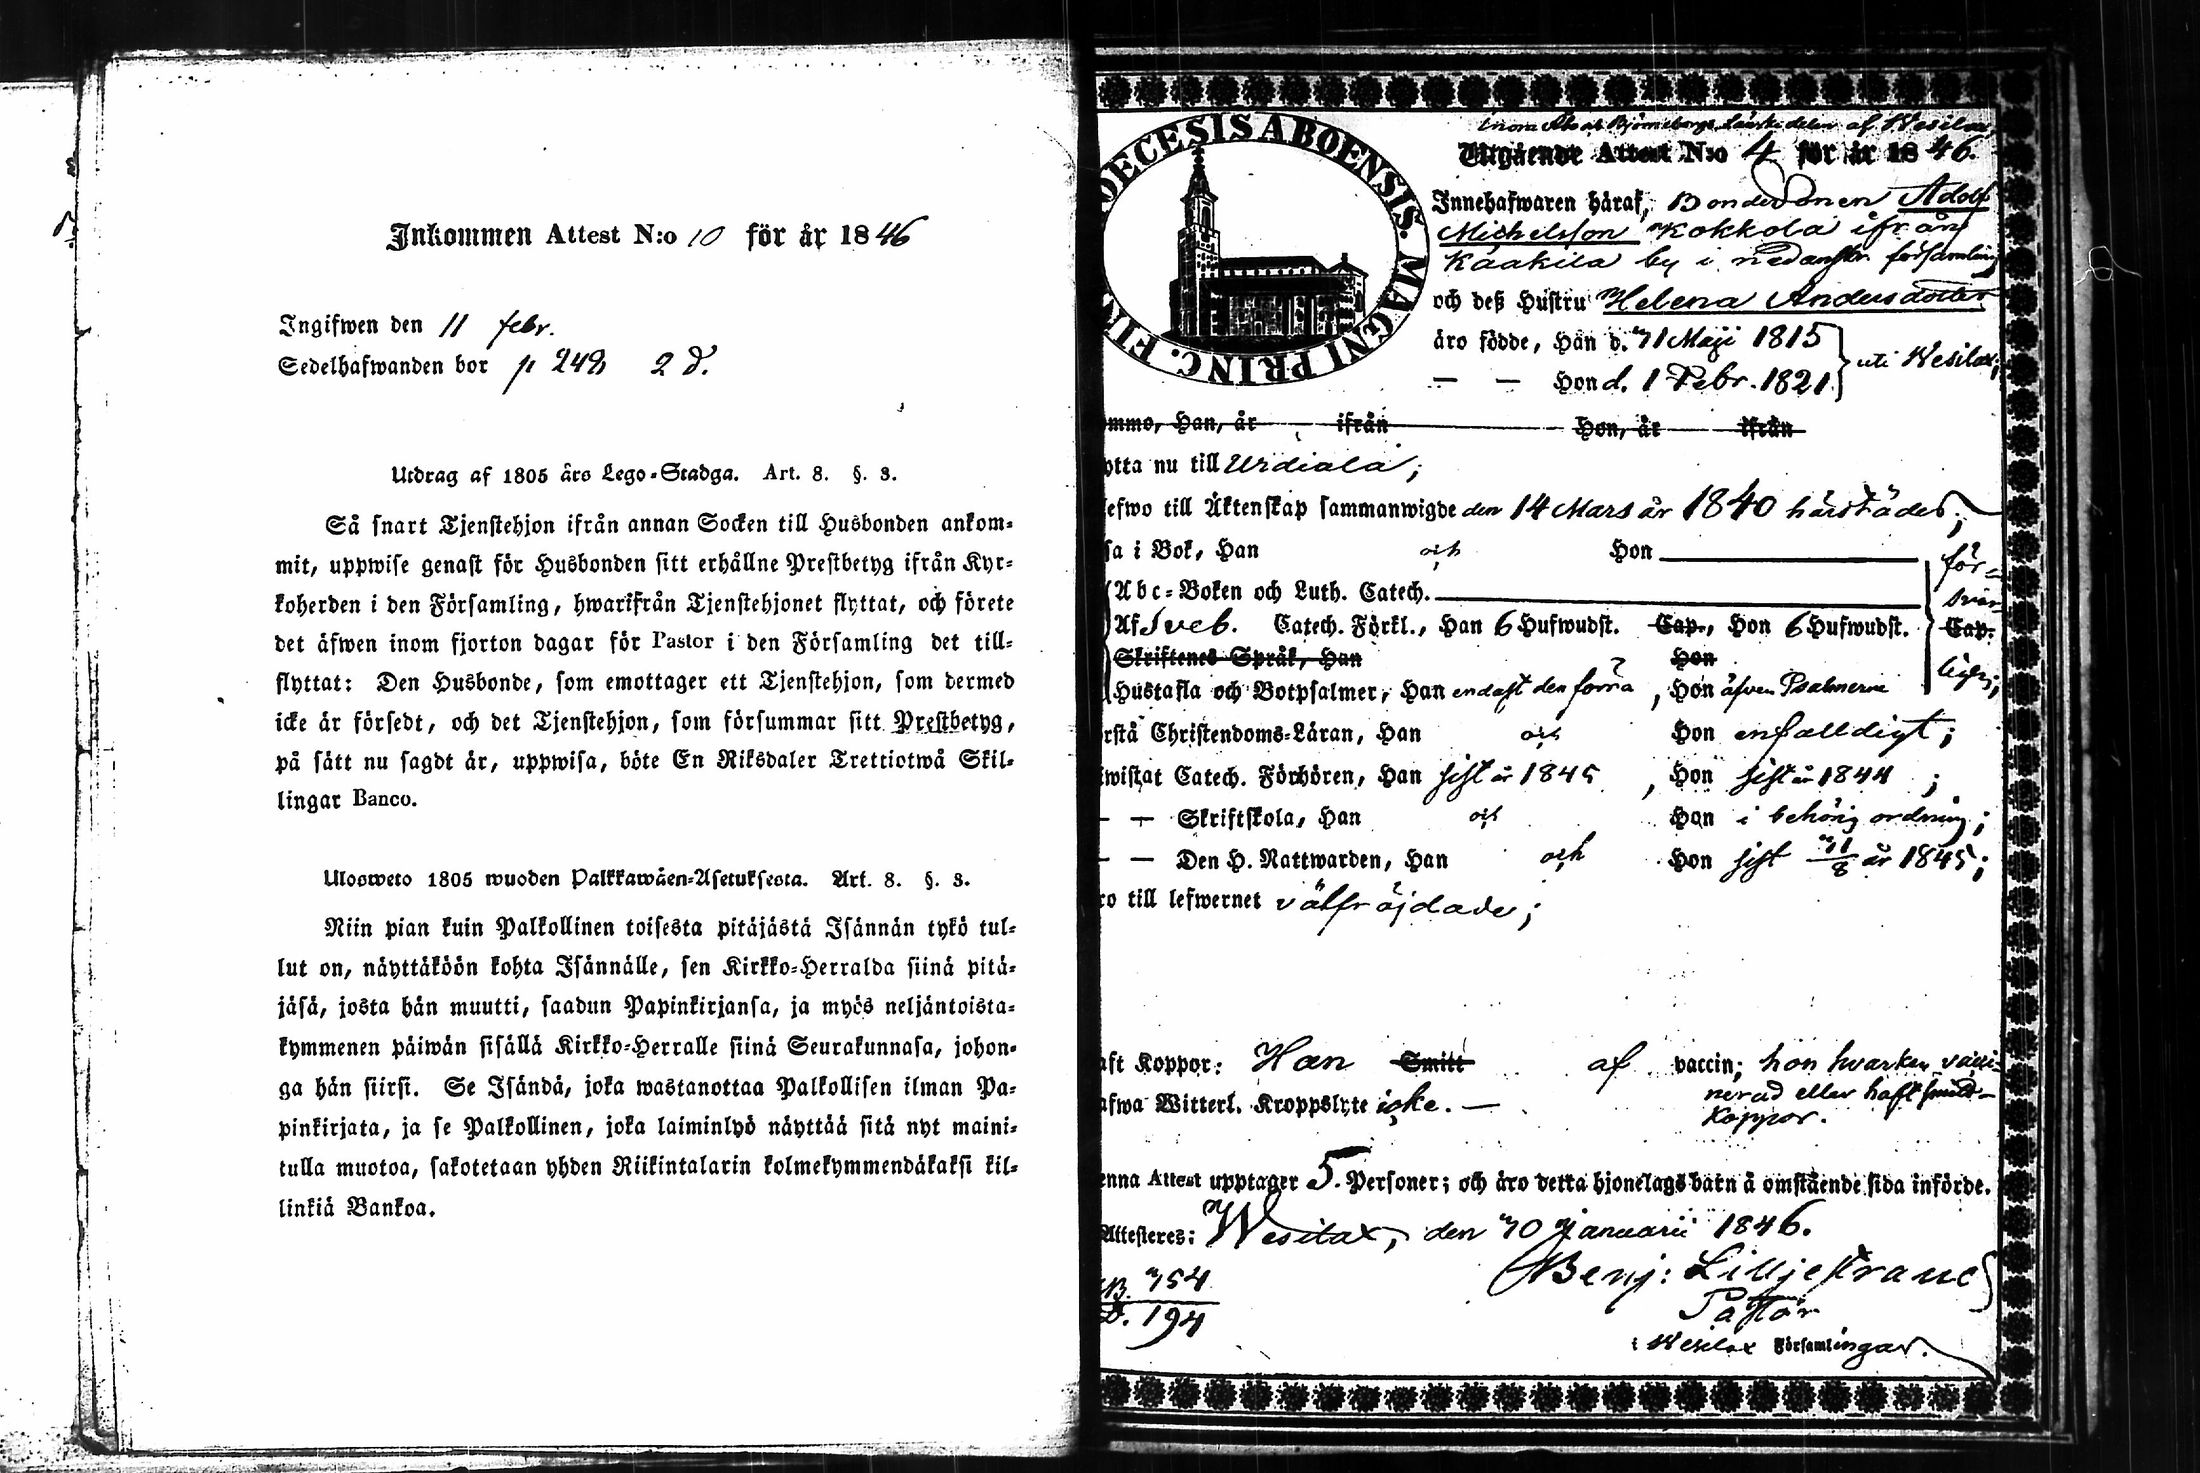 Inkommen Attest N:o 10 för år 1846
Ingifwen den 11 febr.
Sedelhafwanden bor p 242
Utdrag af 1805 års Lego-Stadga. Art. 8. §. 3.
Så snart Tjenstehjon ifrån annan Socken till Husbonden ankom-
mit, uppwise genast för Husbonden sitt erhållne Prestbetyg ifrån Kyr-
koherden i den Församling, hwarifrån Tjenstehjonet flyttat, och förete
det äfwen inom fjorton dagar för Pastor i den Församling det till-
flyttat: Den Husbonde, som emottager ett Tjenstehjon, som dermed
icke är försedt, och det Tjenstehjon, som försummar sitt Prestbetyg,
på sätt nu sagdt är, uppwisa, böte En Riksdaler Trettiotwå Skil-
lingar Banco.
Ulosweto 1805 wuoden Palkkawäen-Asetuksesta. Art. 8. §. 3.
Niin pian kuin Palkollinen toisesta pitäjästä Isännän tykö tul-
lut on, näyttäköön kohta Isännälle, sen Kirkko-Herralda siinä pitä-
jäsä, josta hän muutti, saadun Papinkirjansa, ja myös neljäntoista-
kymmenen päiwän sisällä Kirkko-Herralle siinä Seurakunnasa, johon-
ga hän siirsi. Se Isändä, joka wastanottaa Palkollisen ilman Pa-
pinkirjata, ja se Palkollinen, joka laiminlyö näyttää sitä nyt maini-
tulla muotoa, sakotetaan yhden Riikintalarin kolmekymmendäkaksi kil-
linkiä Bankoa.
OECESIS ABOENSIS. MAGNI PRINC. FIN
inom Åbo och Björneborgs Länske delen af Wesilax,
Utgående Attest N:o 4 för år 1846.
Innehafwaren häraf, Bondesonen Adolf
Michelsson Kokkola ifrån
Kaakila by i nedanstr. församling
och deß Hustru Helena Andersdotter
äro födde, Han d. 31 Maji 1815
— — Hon d. 1 Febr. 1821 uti Wesilax;
ommo, Han, år ifrån Hon, år ifrån
ytta nu till Urdiala;
lefwo till Äktenskap sammanwigde den 14 Mars år 1840 härstädes;
sa i Bok, Han och Hon
Abc-Boken och Luth. Catech.
Af Sveb. Catech. Förkl., Han 6 Hufwudst. Cap., Hon 6 Hufwudst. Cap.
för-
svar-
ligen;
Skriftenes Språk, Han Hon
Hustafla och Botpsalmer, Han endast den förra, Hon äfven Psalmerne
rstå Christendoms-Läran, Han och Hon enfalldigt;
wistat Catech. Förhören, Han sist år 1845, Hon sist år 1844;
— — Skriftskola, Han och Hon i behörig ordning;
— — Den H. Nattwarden, Han och Hon sist 31/8 år 1845;
ro till lefwernet välfräjdade;
aft Koppor: Han Smitt af vaccin; hon hvarken vacci-
nerad eller haft smitt-
koppor.
afwa Witterl. Kroppslyte icke. —
enna Attest upptager 5. Personer; och äro detta hjonelags barn å omstående sida införde.
Attesteres: Wesilax, den 30 Januarii 1846.
Benj: Lilljestrand
Pastor
i Wesilax Församlingar.
B. 354
D. 194